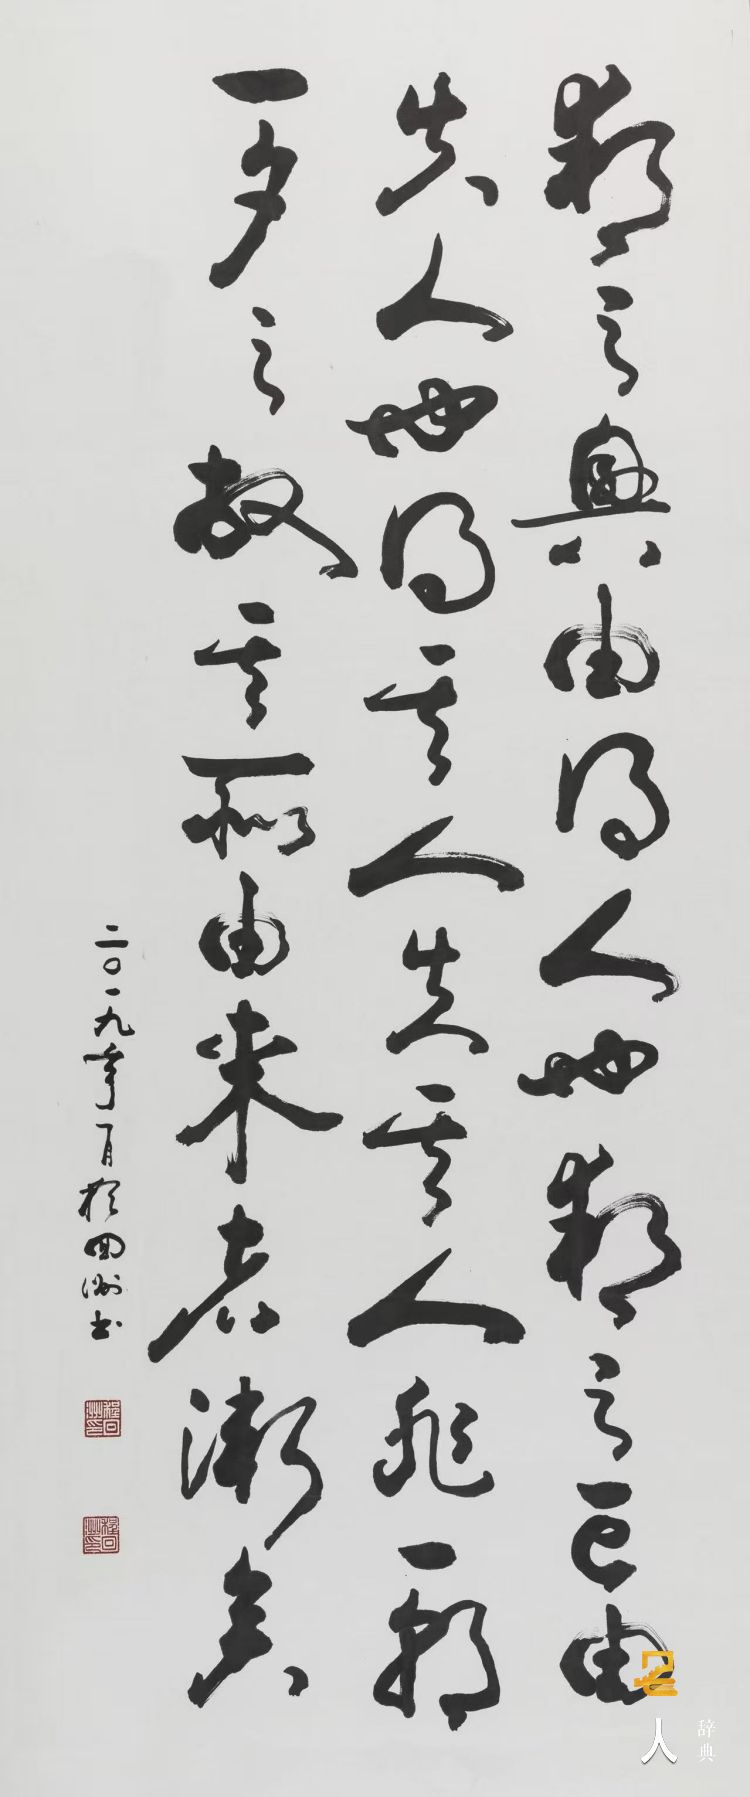 邦之興由得人也邦之亡由
失人也得其人失其人非一朝
一夕之故其所由來者漸矣
二〇一九年夏程回洲书
人
辞典